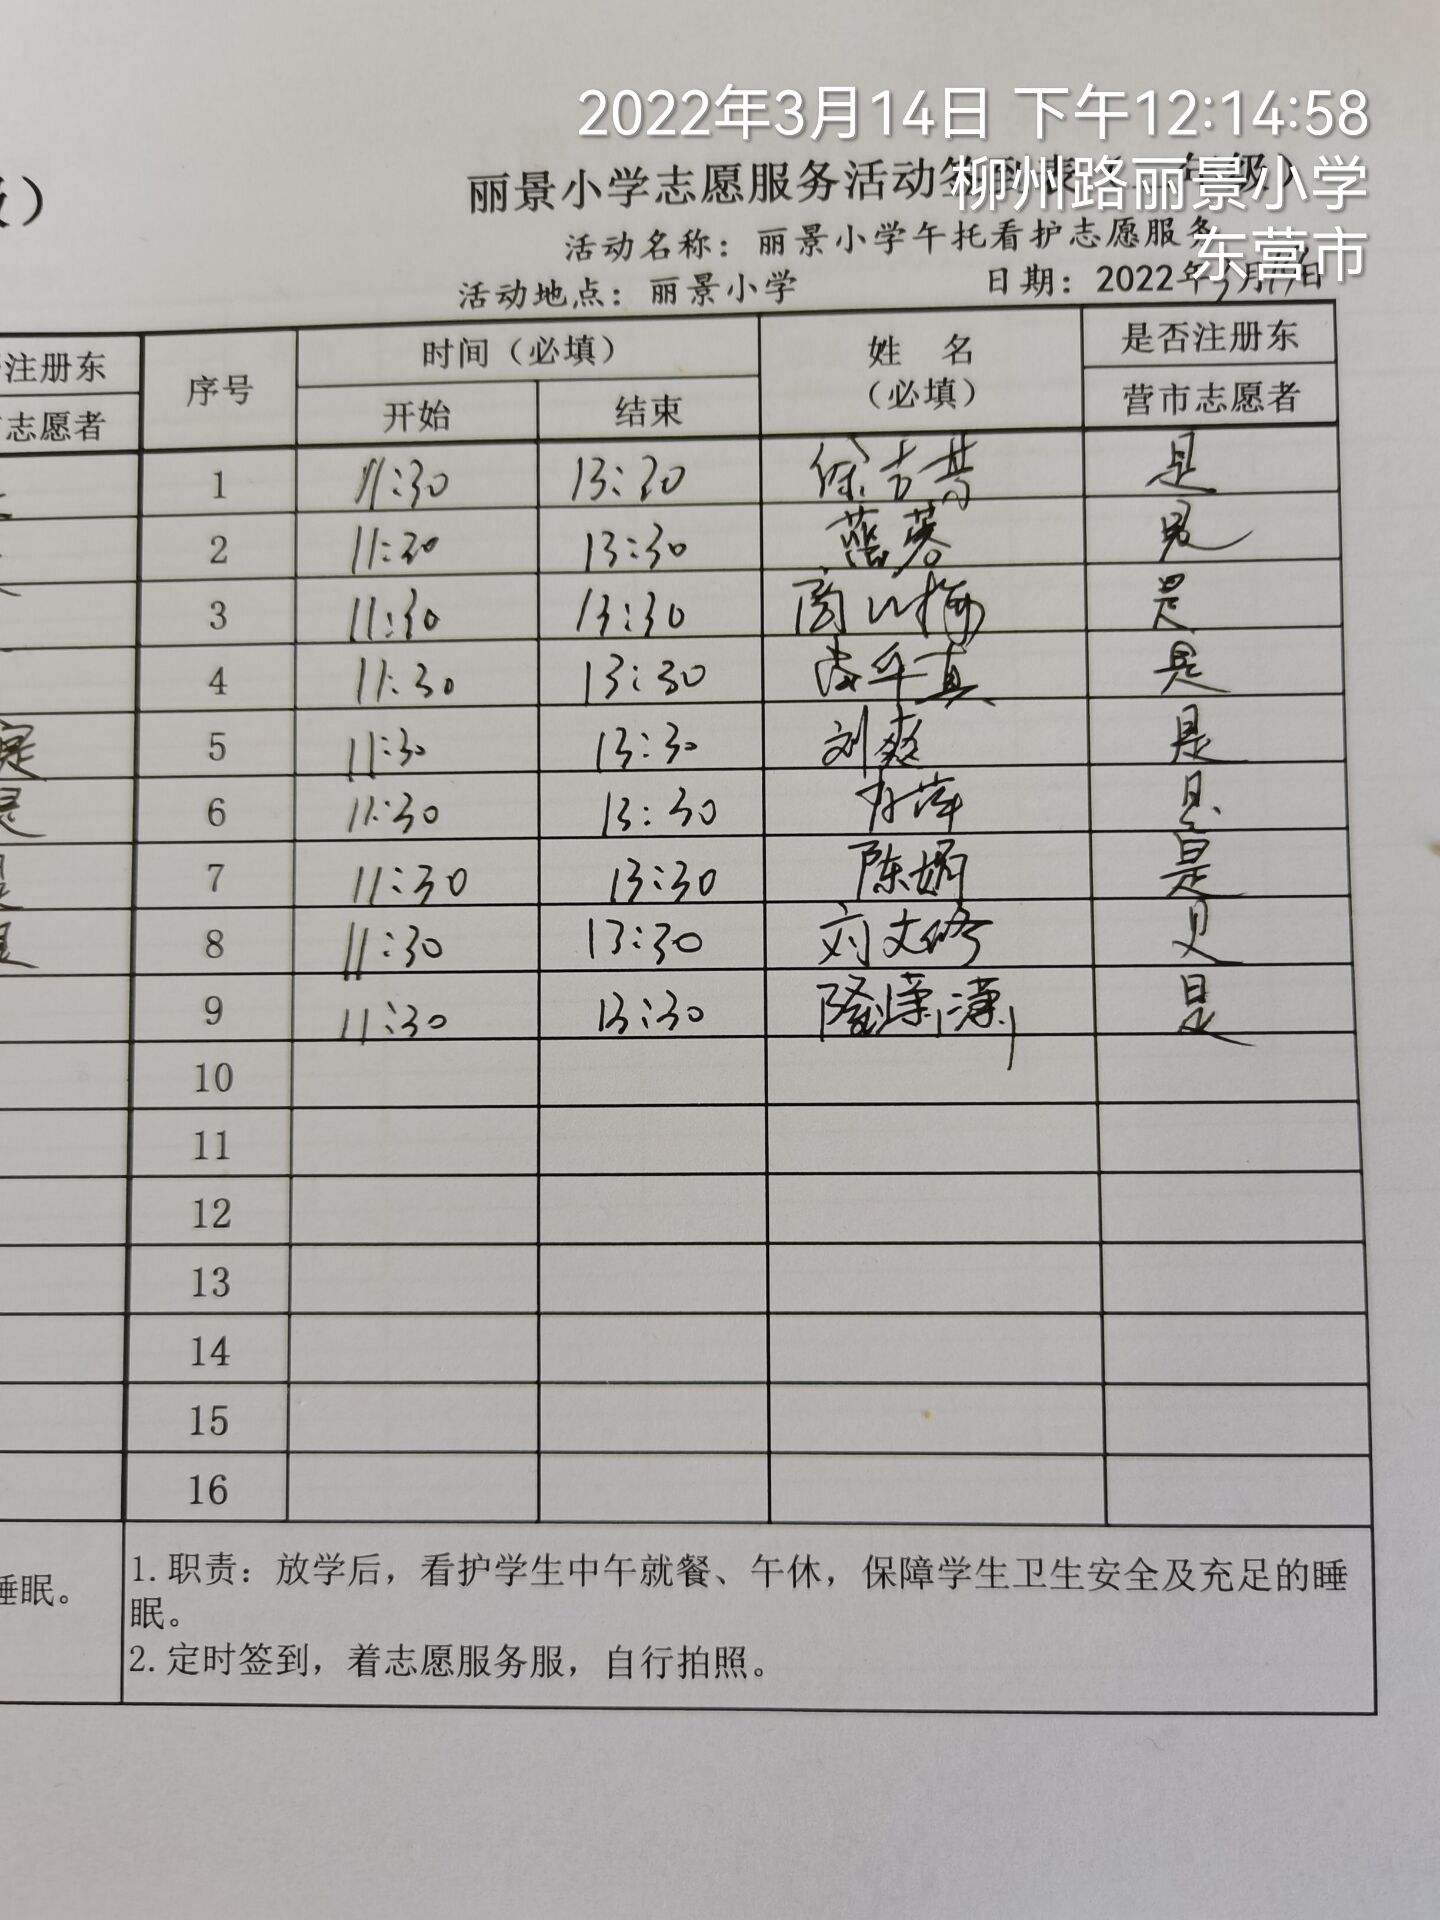 2022年3月14日 下午12:14:58
柳州路丽景小学
东营市
级）
丽景小学志愿服务活动签到表
活动名称：丽景小学午托看护志愿服务
活动地点：丽景小学 日期：2022年3月14日
注册东
志愿者
序号 时间（必填） 姓 名 （必填） 是否注册东
开始 结束 营市志愿者
1 11:30 13:30 是
2 11:30 13:30 是
3 11:30 13:30 是
4 11:30 13:30 是
是 5 11:30 13:30 刘爽 是
是 6 11:30 13:30 是
是 7 11:30 13:30 陈娟 是
是 8 11:30 13:30 刘文修 是
9 11:30 13:30 隆潇潇 是
10
11
12
13
14
15
16
睡眠。
1.职责：放学后，看护学生中午就餐、午休，保障学生卫生安全及充足的睡
眠。
2.定时签到，着志愿服务服，自行拍照。